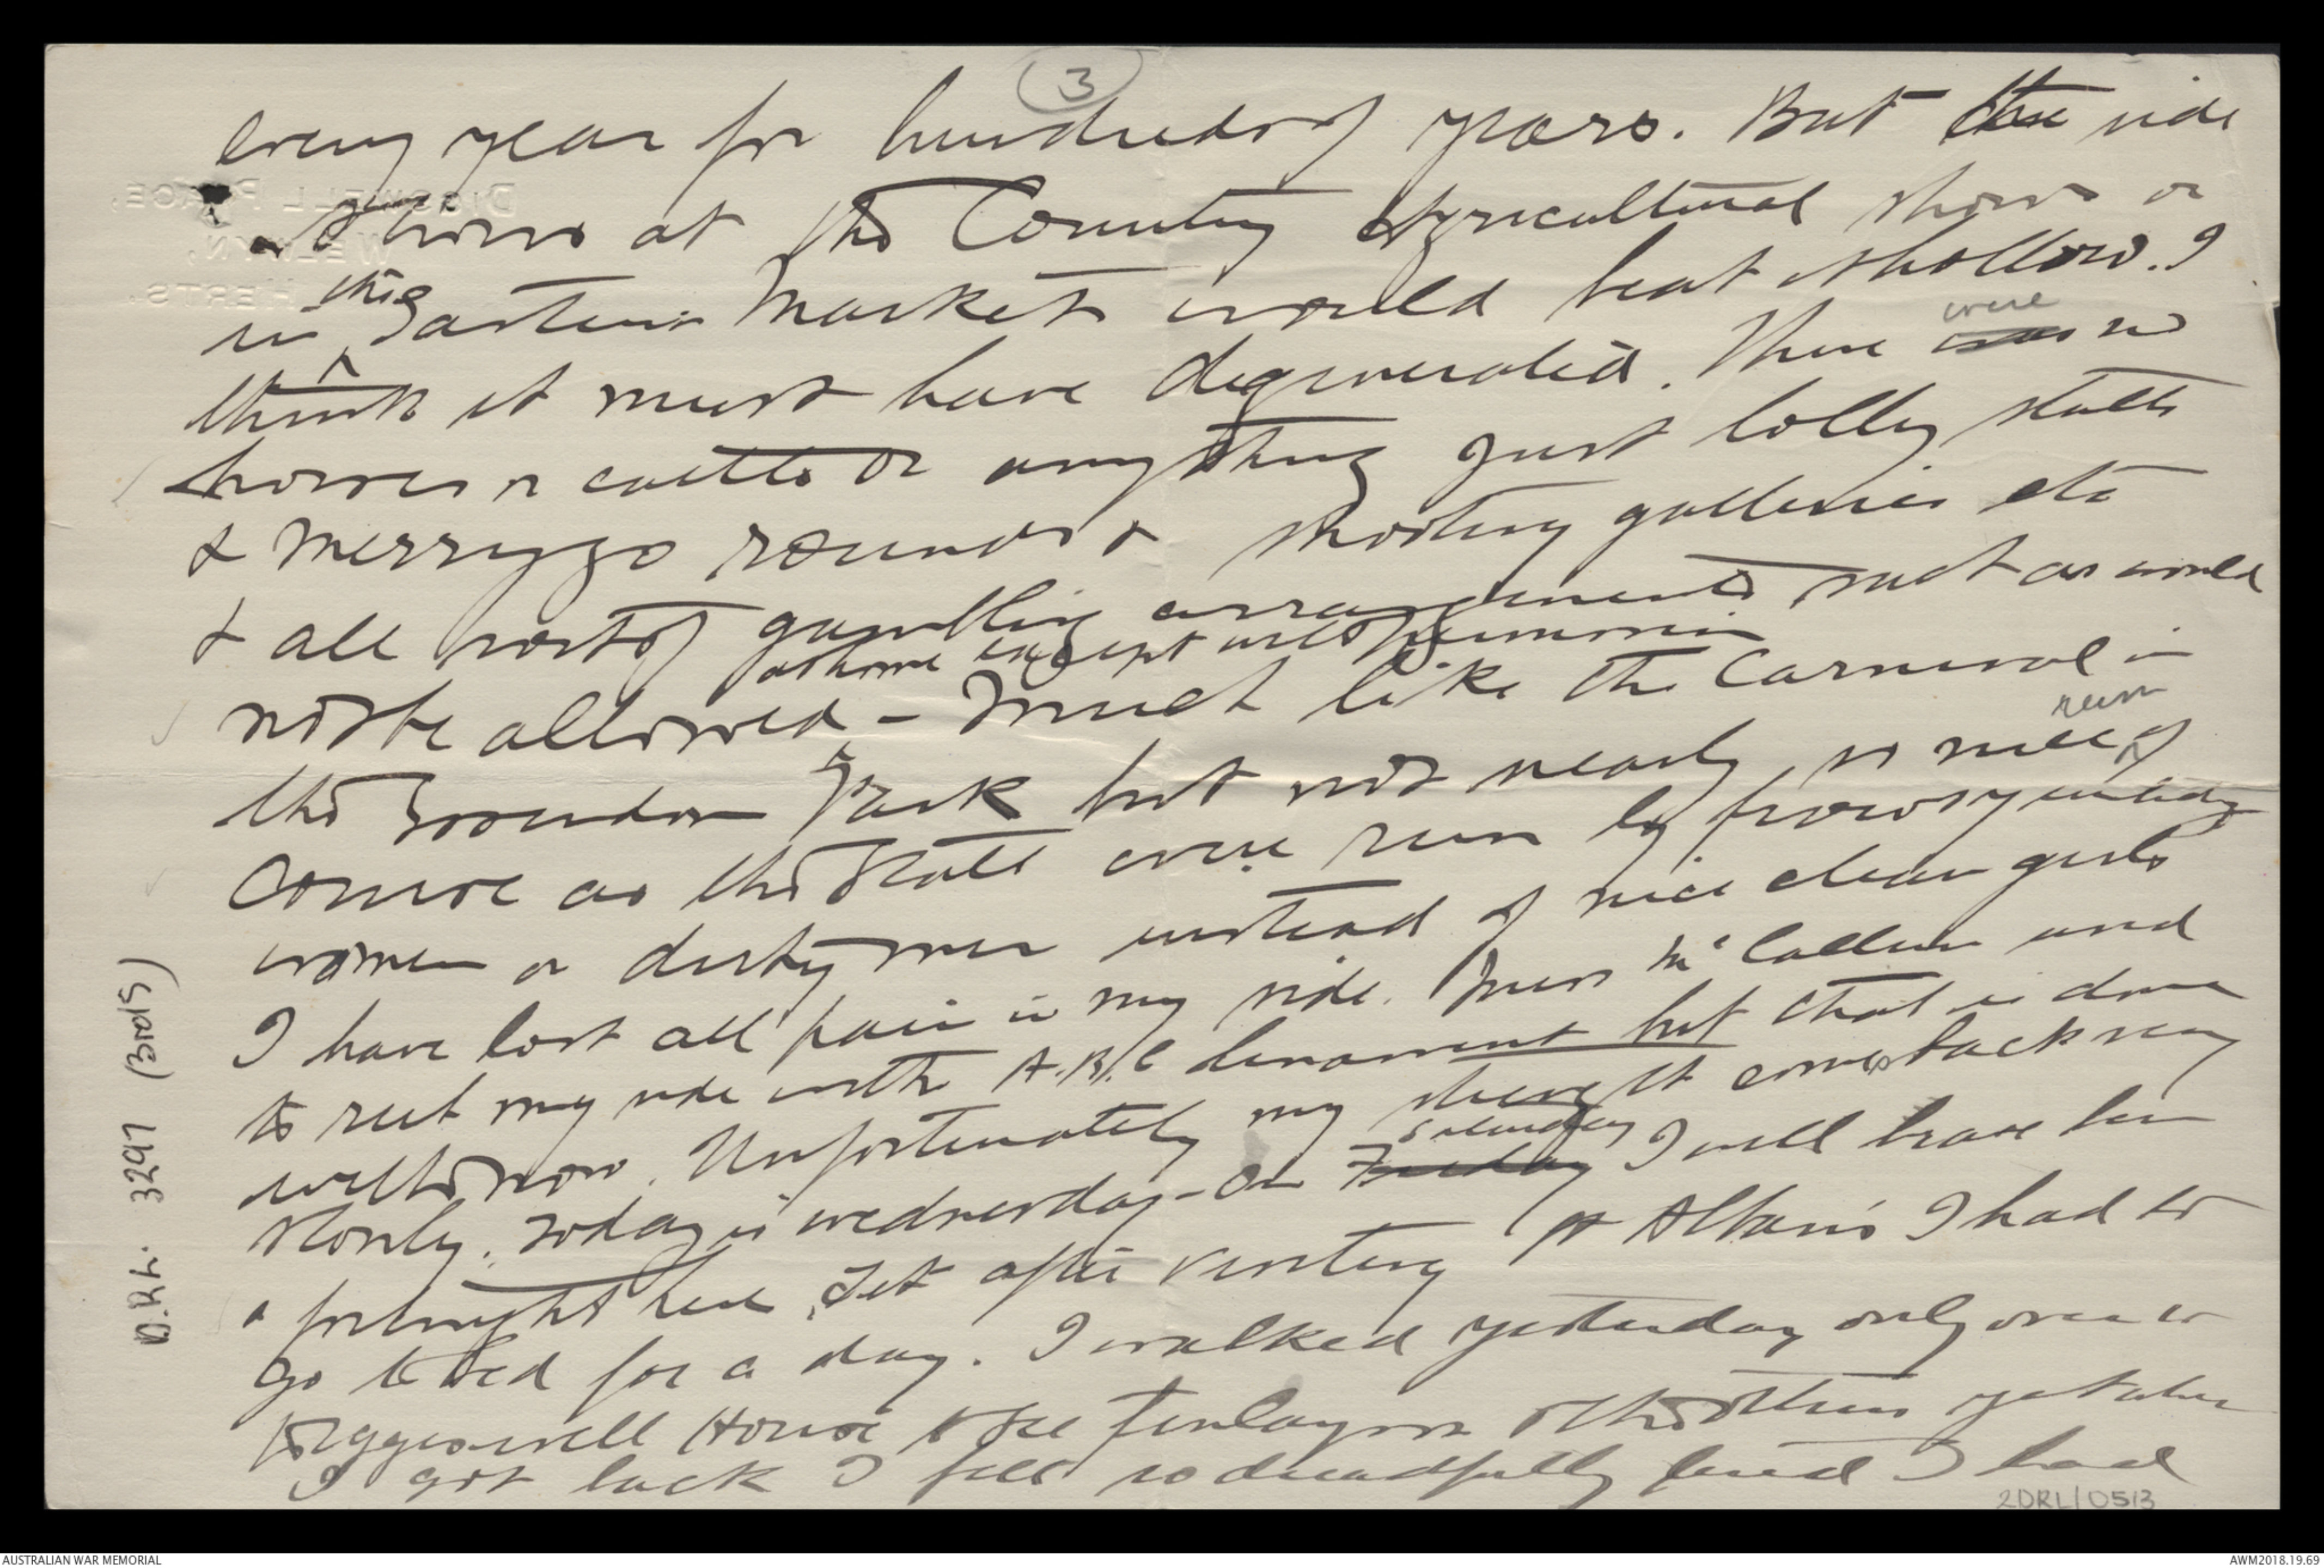 3
every year for hundreds of years. But the side
shows at the Country Agricultural shows or
in this Eastern Market would beat it hollow. I
think it must have degenerated. There were no
horses or cattle or anything just lolly stalls
& merry go rounds & shooting galleries etc
& all sorts of gambling arrangements such as would
not be allowed at home except with permission - Much like the Carnival in
the Essendon Park but not nearly so nice of
course as the stalls were run by frowsy untidy
women or dirty men instead of nice clean girls
I have lost all pain in my side. Miss McCallum used
to rub my side with A.B.C liniment but that is done
with now. Unfortunately my strength comes back very
slowly. Today is Wednesday - on Saturday I will have been
a fortnight here. Yet after visiting St Albans I had to
go to bed for a day. I walked yesterday only over to
Diggeswell House to see Finlayson & the others yet when
I got back I felt so dreadfully tired I had
DIGSWELL PLACE,
WELWYN,
HERTS.
D.R.L. 3297 (3rdls)
2DRL/0513
AUSTRALIAN WAR MEMORIAL
AWM2018.19.69